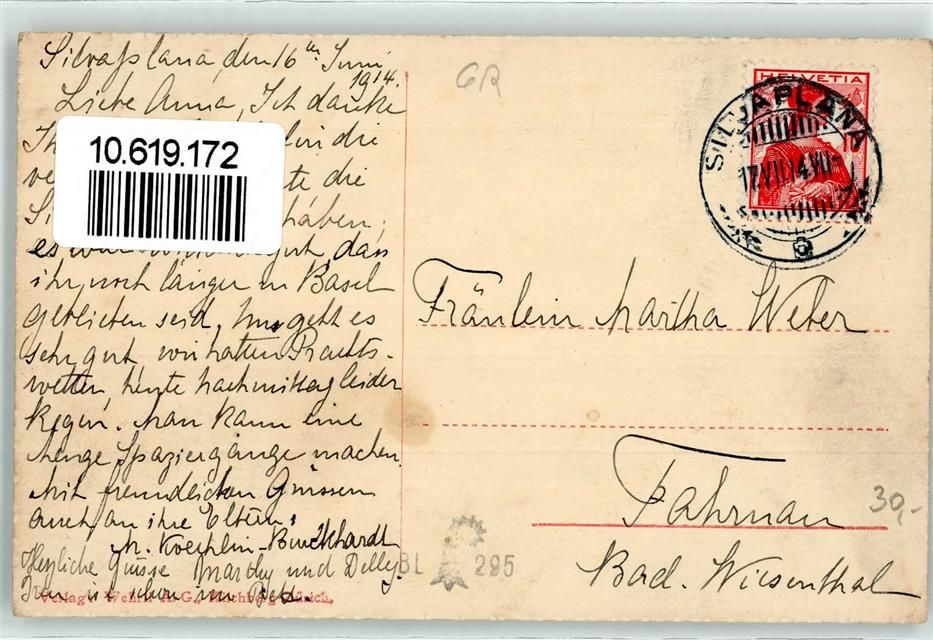 Silvaplana, den 16ten Juni
1914.
Liebe Anna, Ich danke
10.619.172
die
die
haben,
es gut, dass
ihr noch länger in Basel
geblieben seid. Uns geht es
sehr gut wir hatten Prachts-
wetter, heute nachmittag leider
Regen. Man kann eine
Menge Spaziergänge machen.
Mit freundlichen Grüssen
auch an ihre Eltern:
M. Koechlin-Burckhardt
Herzliche Grüsse Marthy und Delly.
ist schon im Bett.
Verlag: Wehrli A. G., Kilchberg-Zürich.
GR
HELVETIA
SILVAPLANA
17.VII.14.VII-
Fräulein Martha Weber
Fahrnau
Bad. Wiesenthal
30,-
BL 295